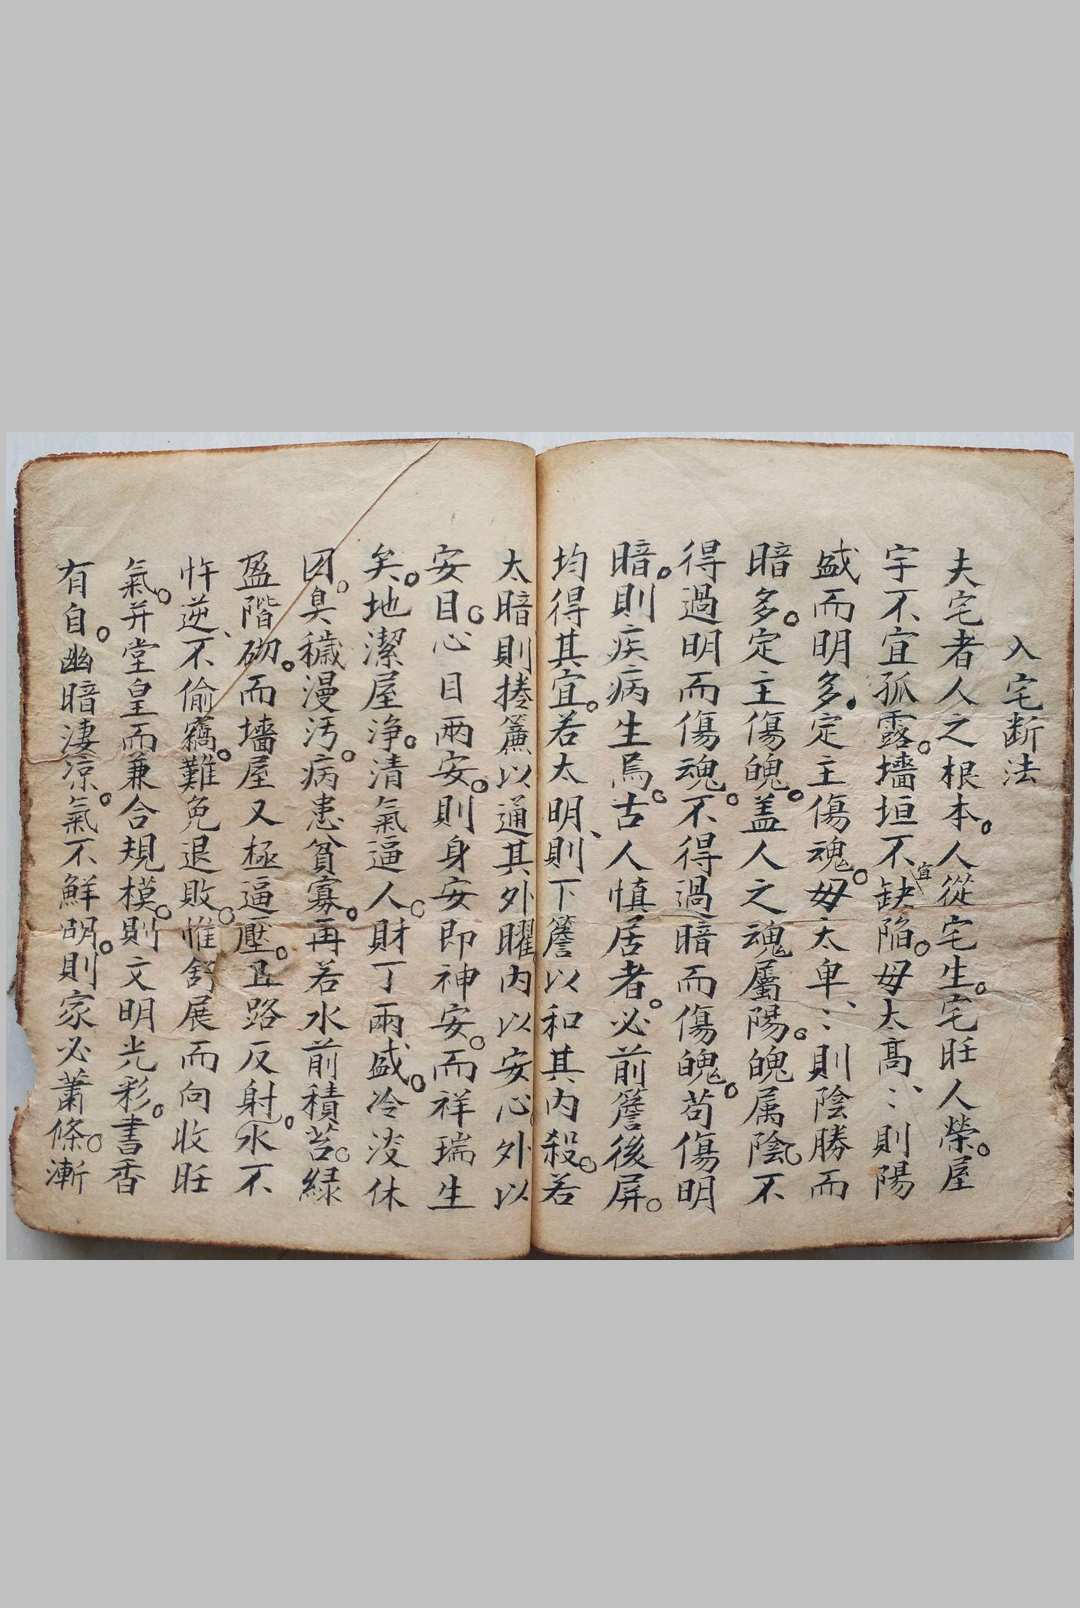 入宅断法
夫宅者人之根本。人從宅生。宅旺人榮。屋
宇不宜孤露。墻垣不宜缺陷。毋太高、〻則陽
盛而明多。定主傷魂。毋太卑、〻則陰勝而
暗多。定主傷魄。盖人之魂屬陽。魄属陰。不
得過明而傷魂。不得過暗而傷魄。苟傷明
暗。則疾病生焉。古人慎居者。必前簷後屏。
均得其宜。若太明、則下簷以和其内殺。若
太暗則捲簾以通其外曜内以安心。外以
安目。心目兩安。則身安即神安。而祥瑞生
矣。地潔屋净。清氣逼人。財丁兩盛。冷淡休
囚。臭穢漫汚。病患貧寡。再若水前積苔。緑
盈階砌。而墻屋又極逼壓。且路反射。水不
忤逆、不偷竊。難免退敗。惟舒展而向收旺
氣。并堂皇而兼合規模。則文明光彩。書香
有自。幽暗淒凉。氣不鮮明。則家必蕭條。漸